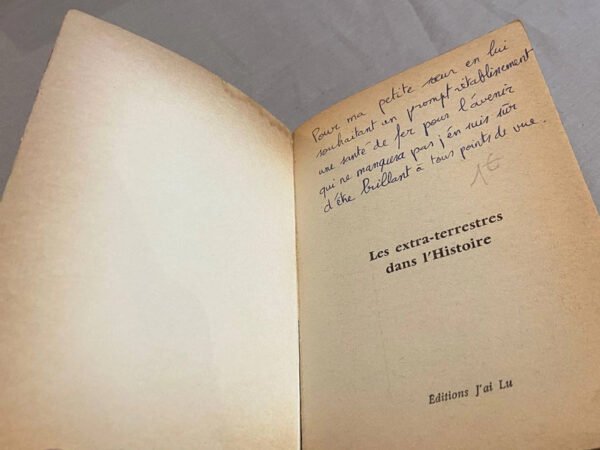 Pour ma petite sœur en lui
souhaitant un prompt rétablissement
une santé de fer pour l'avenir
qui ne manquera pas j'en suis sûr
d'être brillant à tous points de vue.
1€
Les extra-terrestres
dans l'Histoire
Editions J'ai Lu